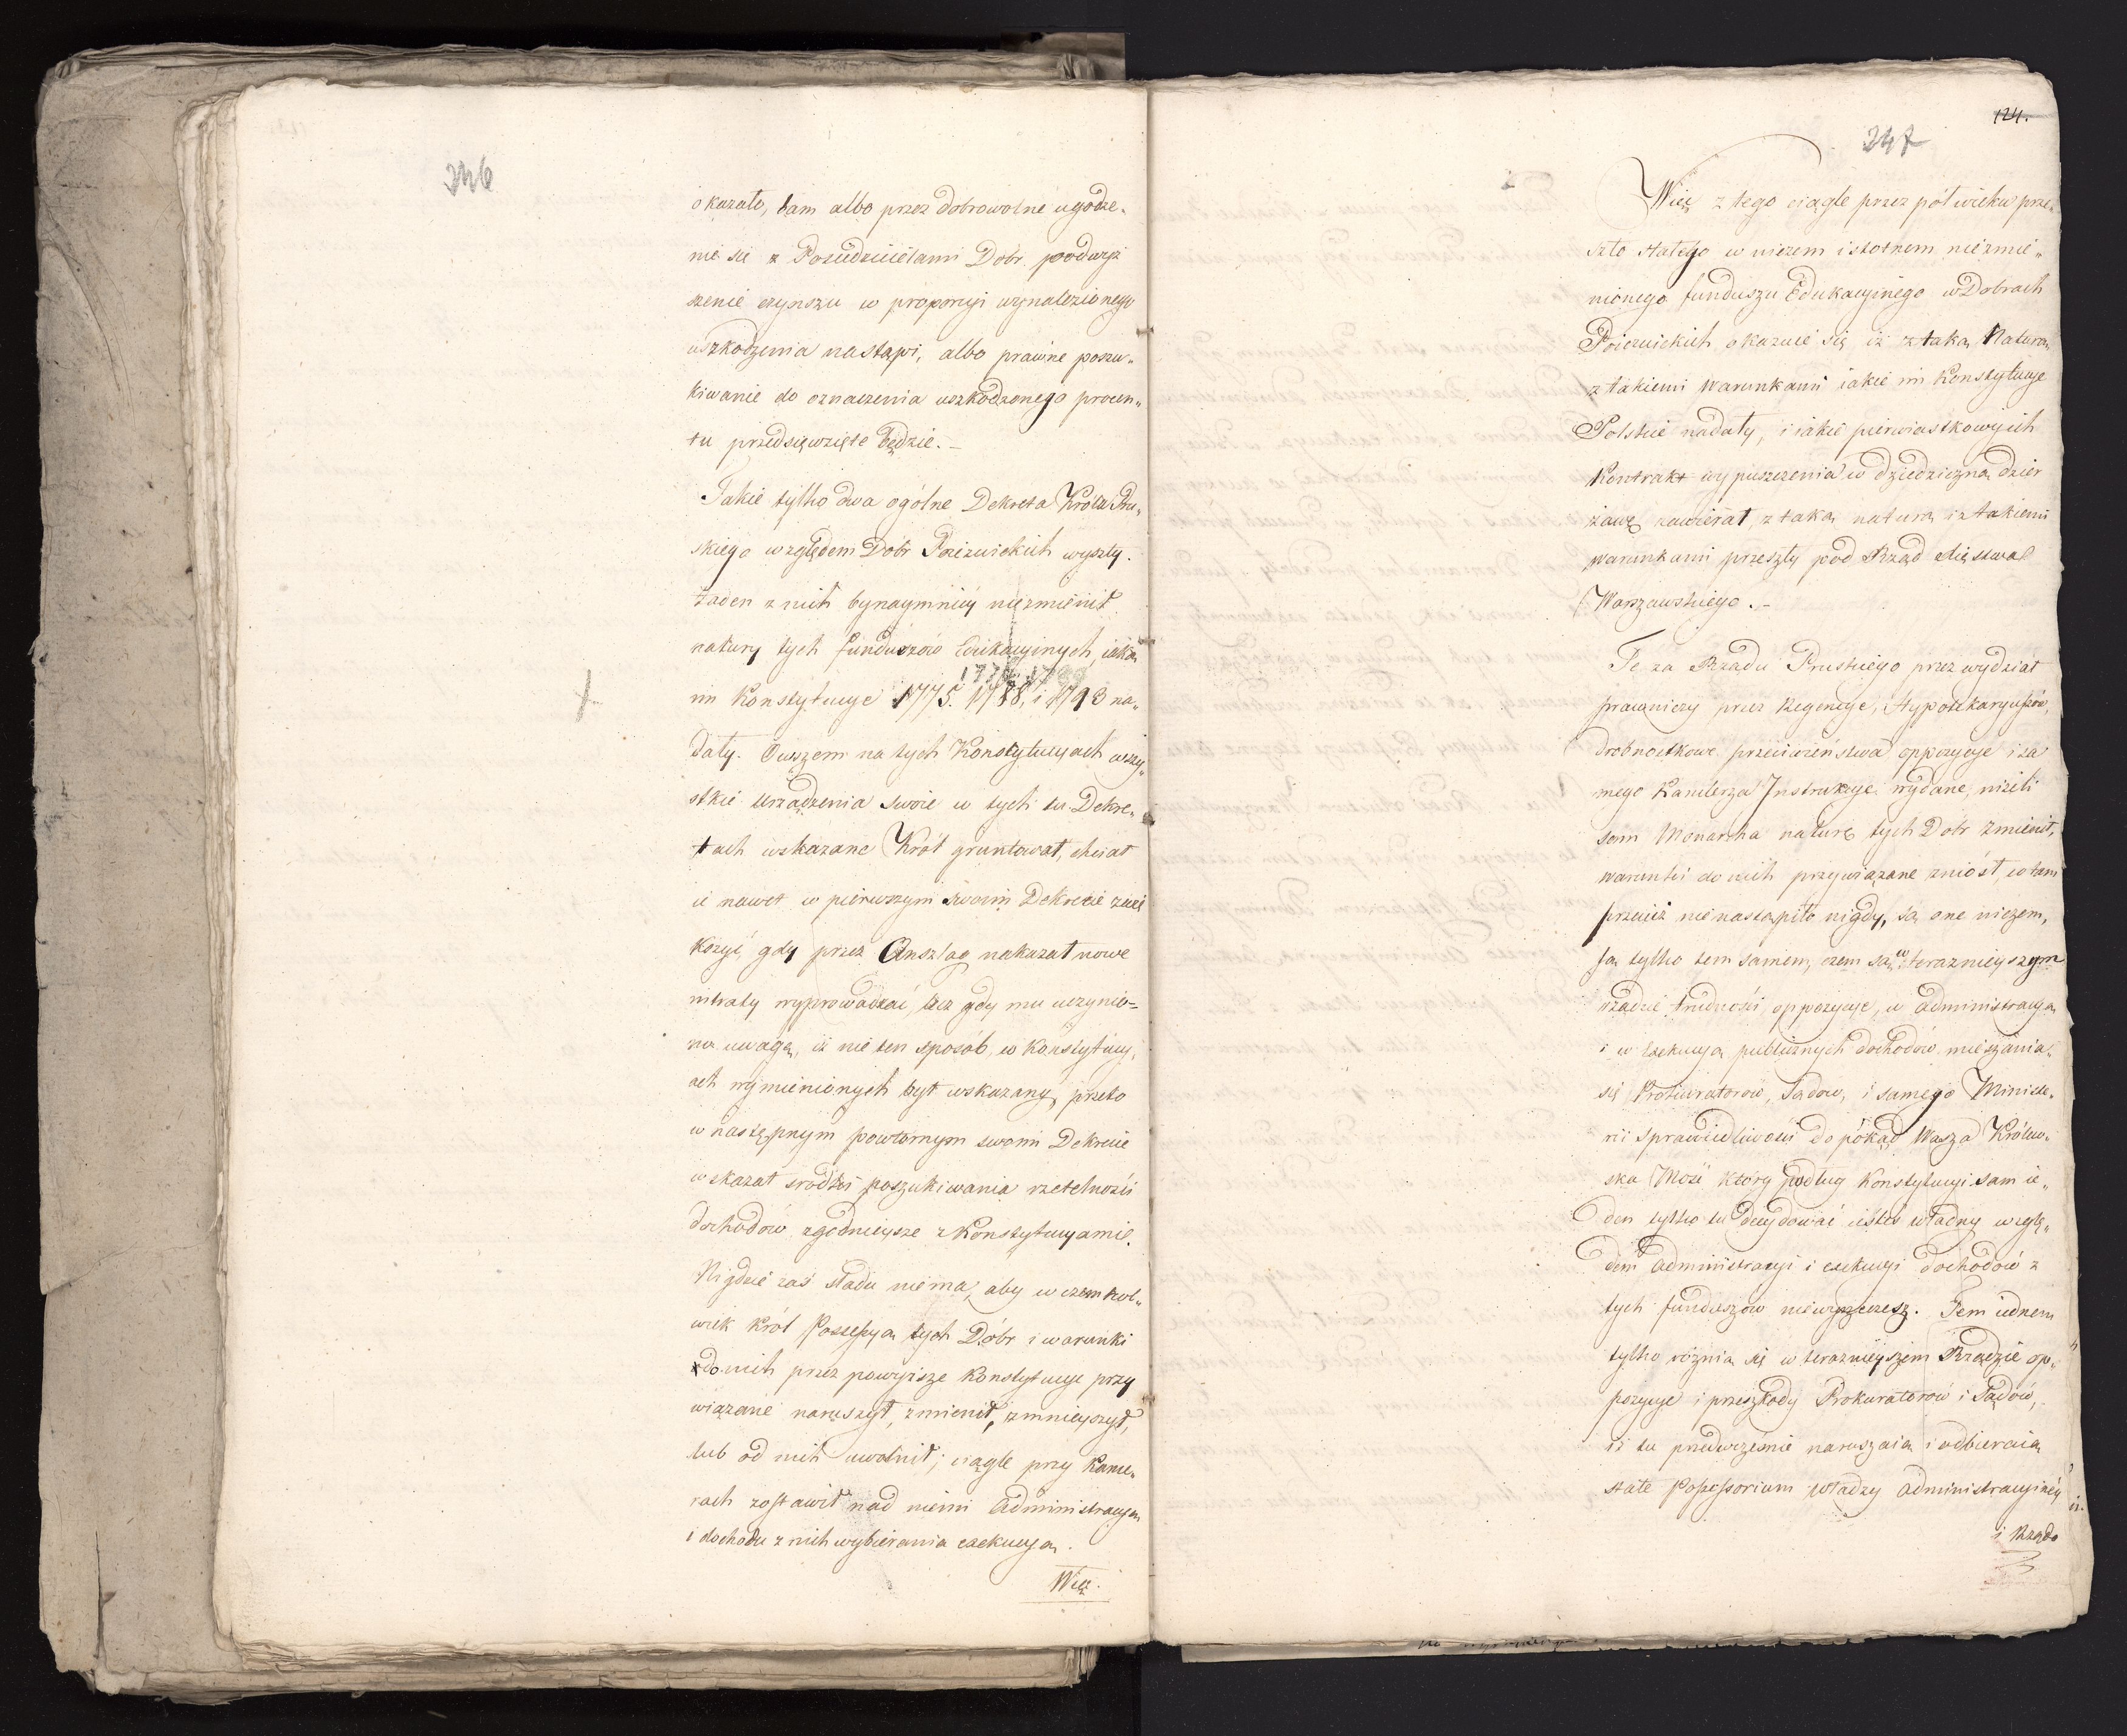 246
okazało, tam albo przez dobrowolne ugodze„
nie się z Posiedzicielami Dobr podwyż
szenie czynszu w proporcyi wynalezionego
uszkodzenia nastąpi, albo prawne poszu„
kiwanie do oznaczenia uszkodzonego procen„
tu przedsięwzięte będzie. –
Takie tylko dwa ogólne Dekreta Króla Pru„
skiego względem Dobr Poiezuickich wyszły.
żaden z nich bynaymniey niezmienił
natury tych funduszów Edukacyinych, iaką
im Konstytucye 1775. 1788, i 1793 na„
dały. Owszem na tych Konstytucyach wszy„
stkie urządzenia swoie w tych tu Dekre„
tach wskazane Król gruntował, chciał
ie nawet w pierwszym swoim Dekrecie
gdy przez Anszlag nakazał nowe
intraty wyprowadzać, lecz gdy mu uczynio=
no uwagę, iż nie ten sposób, w Konstytucy„
ach wymienionych był wskazany, przeto
w następnym powtornym swoim Dekrecie
wskazał srodki poszukiwania rzetelności
dochodów zgodnieysze z Konstytucyami.
Nigdzie zaś sladu niema, aby w czemkol„
wiek Król Possessyą tych Dóbr i warunki
do nich przez powyższe Konstytucye przy
wiązane naruszył, zmienił, zmnieyszył,
lub od nich uwolnił; ciągle przy Kame„
rach zostawił nad niemi Administracyą
i dochodu z nich wybierania exekucyą.
Więc.
124.
247
Więc z tego ciągle przez pół wieku prze„
szło stałego w niczem istotnem niezmie„
nionego funduszu Edukacyinego w Dobrach
Poiezuickich okazuie się, iż z taką Naturą
z takiemi warunkami iakie im Konstytucye
Polskie nadały, i iakie pierwiastkowy ich
Kontrakt wypuszczenia w dziedziczną dzier
żawę zawierał, z taką naturą i z takiemi
warunkami przeszły pod Rząd Xięstwa
Warszawskiego. –
Te za Rządu Pruskiego przez wydział
prawniczy przez Regencye, Hypotekaryuszów,
drobnostkowe przeciwieństwa oppozycye i sa
mego Kanclerza Instrukcye wydane, nizeli
sam Monarcha naturę tych Dóbr zmienił,
warunki do nich przywiązane zniósł, co tam
przecież nienastąpiło nigdy, są one niczem,
są tylko tem samem, czem są w terazniejszym
rządzie trudności oppozycye, w administracyą
i w exekucyą publicznych dochodów mieszania„
się Prokuratorów, Sądów, i samego Ministe„
rii Sprawiedliwości do pókąd Wasza Królew„
ska Mość który podług Konstytucyi sam ie„
den tylko tu decydować iesteś władny wzglę„
dem Administracyi i exekucyi dochodów z
tych funduszów niewyrzeczesz. Tem iednem
tylko różnią się w teraznieyszem Rządzie op„
pozycye i przeszkody Prokuratorów i Sądów,
iż tu przedwcześnie naruszaią i odbieraią
stałe Possessorium władzy administracyiney
i Rządo